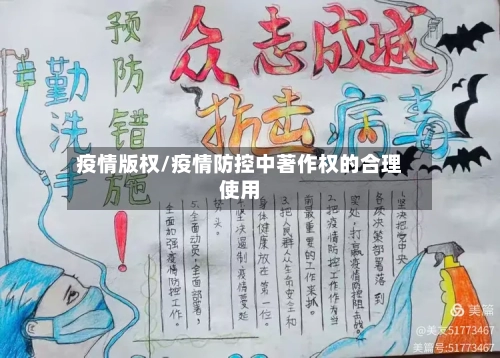 众志成城
抗击病毒
预防错施！
勤洗手
疫情版权/疫情防控中著作权的合理
使用
1.坚决把党中央
各项决策部署落到
实处,打赢疫情防控阻击战。
2.把疫情防控工作作为当
前最重要的工作来抓。
3.把人民群众生命安全和
身体健康放在第一位。
坚决遏制疫情蔓延
势头。
5.全面动员,全面部署,
全面加强疫情防控工作。
美篇
@美友51773467
美篇号:51773467